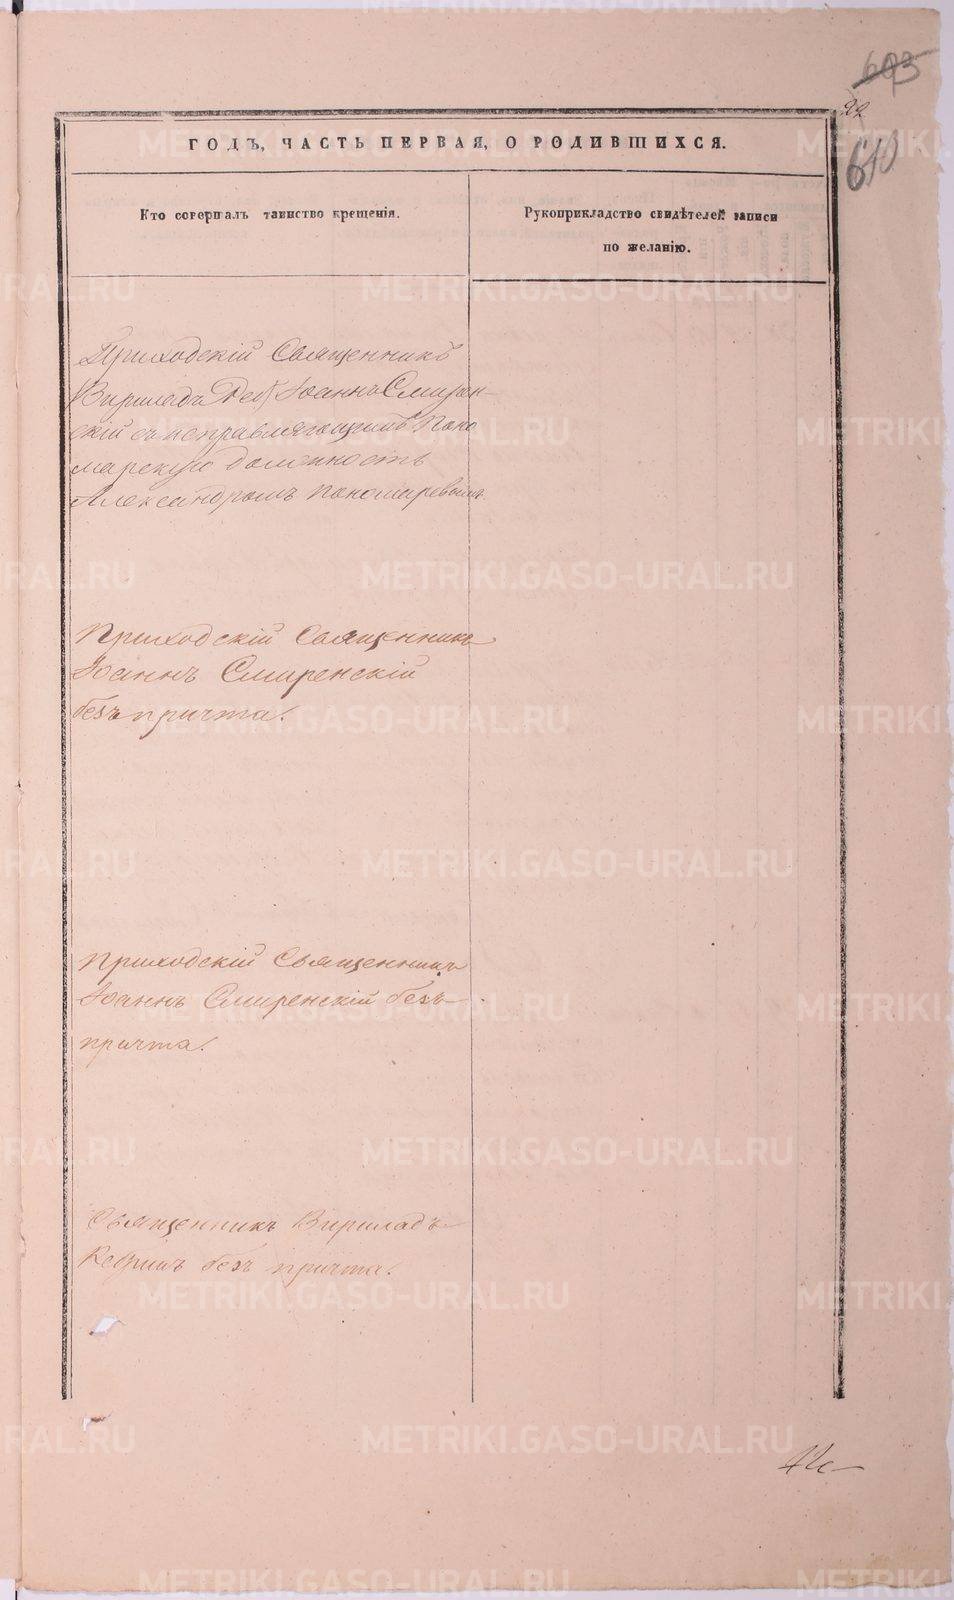 603
22
610
ГОДЪ, ЧАСТЬ ПЕРВАЯ, О РОДИВШИХСЯ.
Кто совершалъ таинство крещенія.
Рукоприкладство свидѣтелей записи
по желанію.
Приходскій Священникъ
Іоаннъ Смирен-
скій съ исправляющимъ Поно
марскую должность
Александромъ Пономаревымъ
Приходскій Священникъ
Іоаннъ Смиренскій
безъ причта.
Приходскій Священникъ
Іоаннъ Смиренскій безъ
причта.
Священникъ Вириладъ
безъ причта.
METRIKI.GASO-URAL.RU